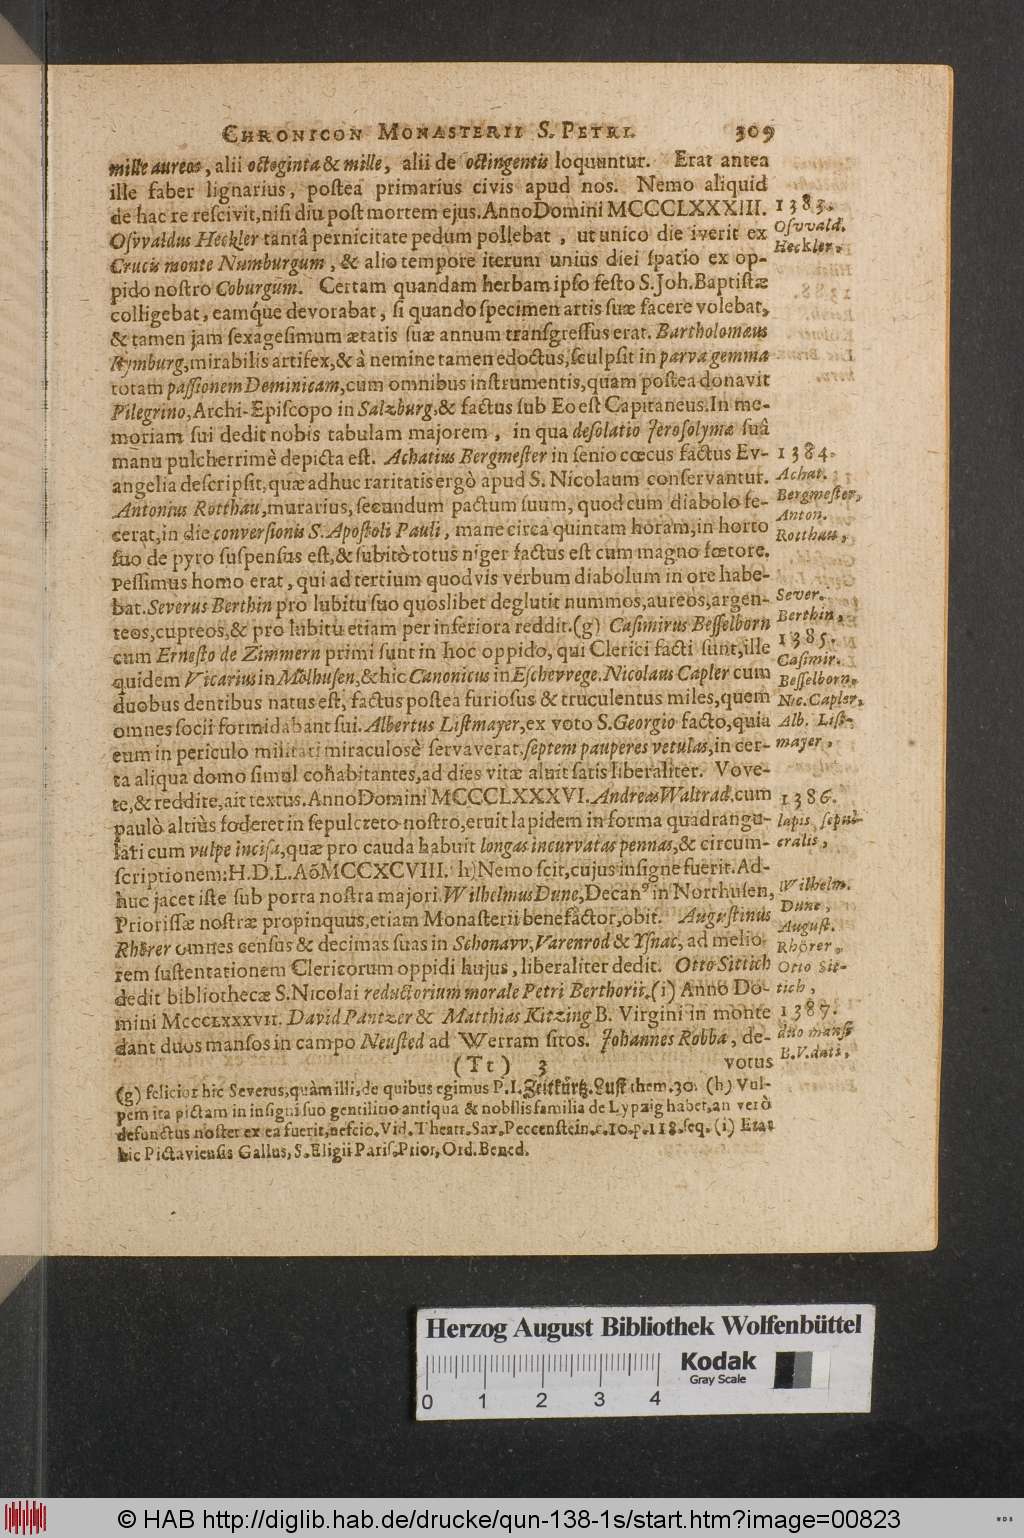 CHRONICON MONASTERII S. PETRI. 309
mille aureos, alii octoginta & mille, alii de octingentis loquuntur. Erat antea
ille faber lignarius, postea primarius civis apud nos. Nemo aliquid
de hac re rescivit, nisi diu post mortem ejus. Anno Domini MCCCLXXXIII.
1383.
Osvvaldus Heckler tantâ pernicitate pedum pollebat, ut unico die iverit ex
Osvvald.
Heckler,
Crucis monte Numburgum, & alio tempore iterum unius diei spatio ex op-
pido nostro Coburgum. Certam quandam herbam ipso festo S. Joh. Baptistæ
colligebat, eamq́ue devorabat, si quando specimen artis suæ facere volebat,
& tamen jam sexagesimum ætatis suæ annum transgressus erat. Bartholomæus
Rymburg, mirabilis artifex, & à nemine tamen edoctus, sculpsit in parva gemma
totam passionem Dominicam, cum omnibus instrumentis, quam postea donavit
Pilegrino, Archi-Episcopo in Salzburg, & factus sub Eo est Capitaneus. In me-
moriam sui dedit nobis tabulam majorem, in qua desolatio Jerosolymæ suâ
manu pulcherrimè depicta est. Achatius Bergmester in senio cœcus factus Ev-
1384.
angelia descripsit, quæ adhuc raritatis ergò apud S. Nicolaum conservantur.
Achat.
Bergmester,
Antonius Rotthau, murarius, secundum pactum suum, quod cum diabolo fe-
Anton.
cerat, in die conversionis S. Apostoli Pauli, mane circa quintam horam, in horto
Rotthau,
suo de pyro suspensus est, & subitò totus niger factus est cum magno fœtore.
Pessimus homo erat, qui ad tertium quodvis verbum diabolum in ore habe-
bat. Severus Berthin pro lubitu suo quoslibet deglutit nummos, aureos, argen-
Sever.
Berthin,
teos, cupreos, & pro lubitu etiam per inferiora reddit. (g) Casimirus Besselborn
1385.
cum Ernesto de Zimmern primi sunt in hoc oppido, qui Clerici facti sunt, ille
Casimir.
quidem Vicarius in Mölhusen, & hic Canonicus in Eschevvege. Nicolaus Capler cum
Besselborn,
duobus dentibus natus est, factus postea furiosus & truculentus miles, quem
Nic. Capler,
omnes socii formidabant sui. Albertus Listmayer, ex voto S. Georgio facto, quia
Alb. List-
mayer,
eum in periculo militari miraculosè servaverat, septem pauperes vetulas, in cer-
ta aliqua domo simul cohabitantes, ad dies vitæ aluit satis liberaliter. Vove-
te, & reddite, ait textus. Anno Domini MCCCLXXXVI. Andreas Waltrad, cum
1386.
paulò altiùs foderet in sepulcreto nostro, eruit lapidem in forma quadrangu-
lapis sepul-
cralis,
lati cum vulpe incisa, quæ pro cauda habuit longas incurvatas pennas, & circum-
scriptionem: H. D. L. Aō MCCXCVIII. (h) Nemo scit, cujus insigne fuerit. Ad-
huc jacet iste sub porta nostra majori. Wilhelmus Dune, Decan9 in Northusen,
Wilhelm.
Dune,
Priorissæ nostræ propinquus, etiam Monasterii benefactor, obit. Augustinus
August.
Rhörer omnes census & decimas suas in Schonavv, Varenrod & Ysnac, ad melio-
Rhörer,
rem sustentationem Clericorum oppidi hujus, liberaliter dedit. Otto Sittich
Otto Sit-
tich,
dedit bibliothecæ S. Nicolai reductorium morale Petri Berthorii. (i) Anno Do-
mini MCCCLXXXVII. David Pantzer & Matthias Kitzing B. Virgini in monte
1387.
dant duos mansos in campo Neusted ad Werram sitos. Johannes Robba, de-
duo mansi
B. V. dati,
(Tt) 3 votus
(g) felicior hic Severus, quàm illi, de quibus egimus P. I. Zeitkürtz. Lust them. 30. (h) Vul-
pem ita pictam in insigni suo gentilitio antiqua & nobilis familia de Lypzig habet, an verò
defunctus noster ex ea fuerit, nescio. Vid. Theatr. Sax. Peccenstein. c. 10. p. 118. seq. (i) Erat
hic Pictaviensis Gallus, S. Eligii Paris. Prior, Ord. Bened.
Herzog August Bibliothek Wolfenbüttel
Kodak
Gray Scale
0 1 2 3 4
© HAB http://diglib.hab.de/drucke/qun-138-1s/start.htm?image=00823
WDB